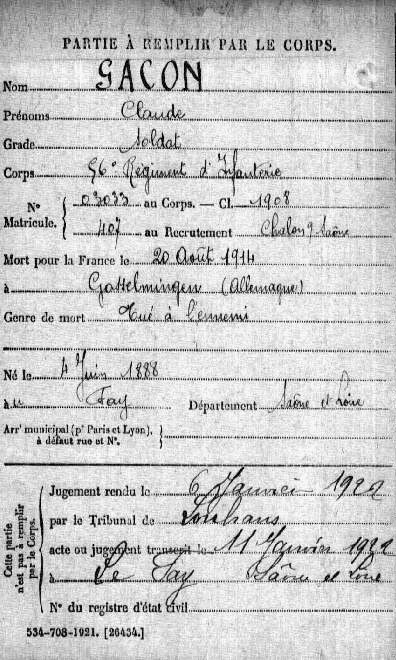 PARTIE À REMPLIR PAR LE CORPS.
Nom GACON
Prénoms Claude
Grade Soldat
Corps 56e Régiment d'Infanterie
N° Matricule. { 03033 au Corps. — Cl. 1908
407 au Recrutement Chalon s Saône
Mort pour la France le 20 Août 1914
à Gosselmingen (Allemagne)
Genre de mort Tué à l'ennemi
Né le 4 Juin 1888
à Fay Département Saône et Loire
Arrt municipal (pr Paris et Lyon), à défaut rue et N°. }
Cette partie n'est pas à remplir par le Corps.
Jugement rendu le 6 Janvier 1922
par le Tribunal de Louhans
acte ou jugement transcrit le 11 Janvier 1922
à Le Fay Saône et Loire
N° du registre d'état civil
534-708-1921. [26434.]